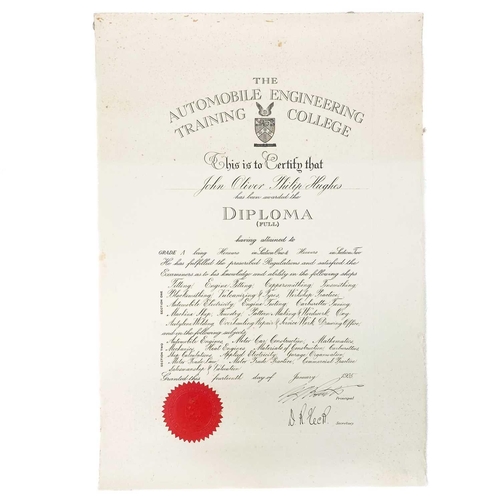 THE
AUTOMOBILE ENGINEERING
TRAINING COLLEGE
This is to Certify that
John Oliver Philip Hughes
has been awarded the
DIPLOMA
(FULL)
having attained to
GRADE A being Honours in Section One & Honours in Section Two
He has fulfilled the prescribed Regulations and satisfied the
Examiners as to his knowledge and ability in the following shops
SECTION ONE
Fitting, Engine Fitting, Coppersmithing, Tinsmithing
Blacksmithing, Vulcanizing & Tyres, Workshop Practice
Automobile Electricity, Engine Testing, Carburetter Tuning
Machine Shop, Foundry, Pattern Making & Woodwork, Oxy
Acetylene Welding, Overhauling Repair & Service Work, Drawing Office
and in the following subjects
SECTION TWO
Automobile Engines, Motor Car Construction, Mathematics,
Mechanics, Heat Engines, Materials of Construction, Carburettion
Shop Calculations, Applied Electricity, Garage Organization
Motor Trade Law, Motor Trade Practice, Commercial Practice
Salesmanship & Valuation
Granted this fourteenth day of January
Principal
Secretary